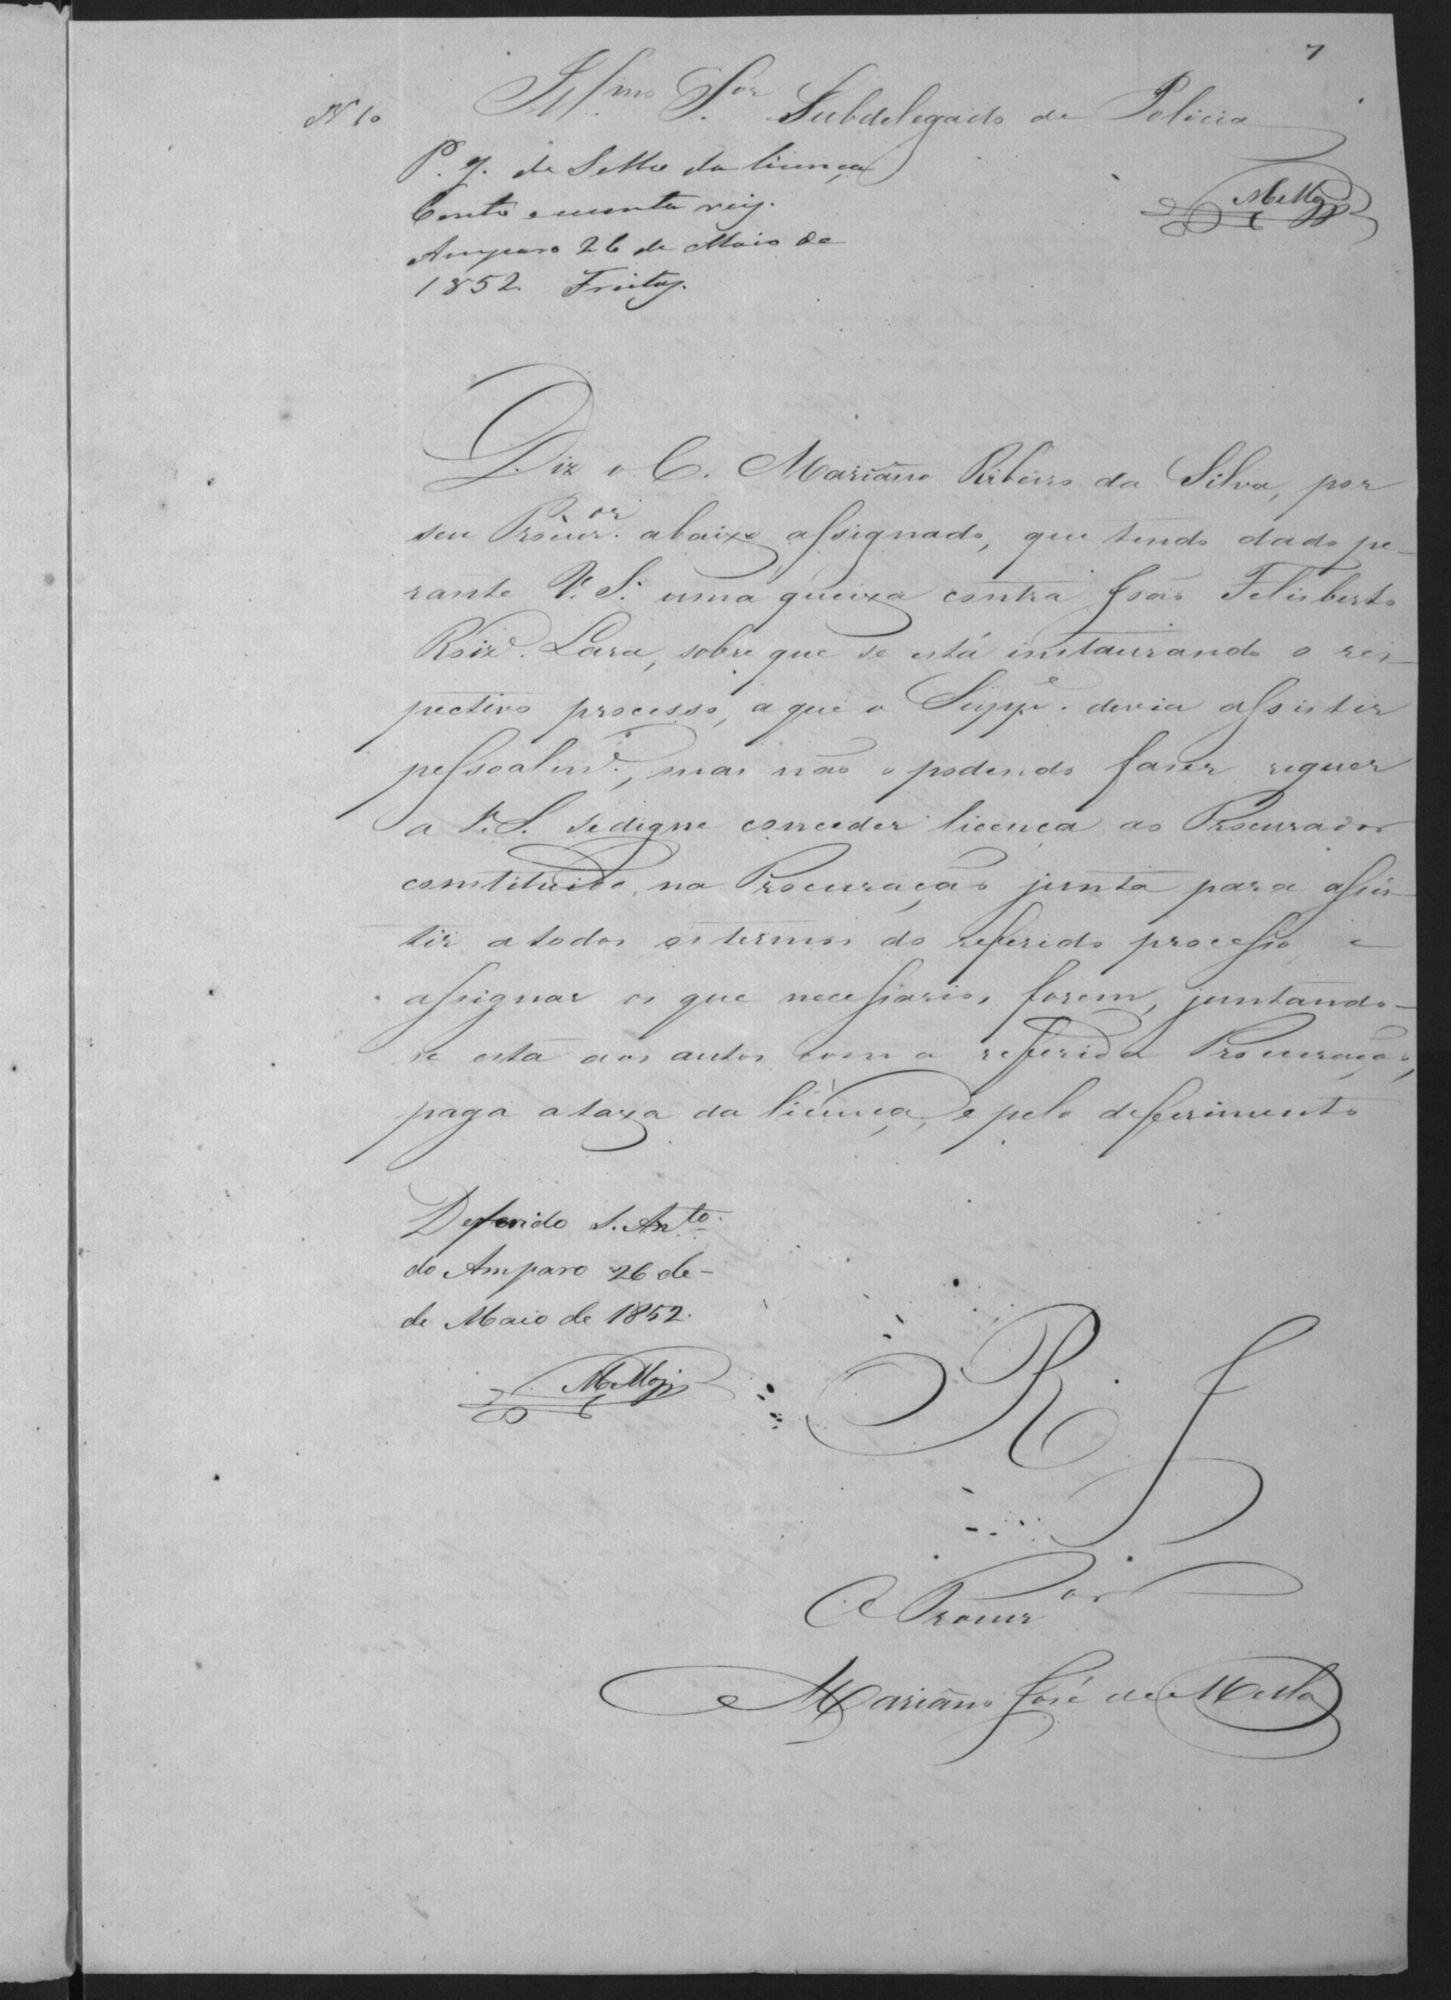 7
Illmo Sor Subdelegado de Policia
N 10
P. g. de Sello da licença
Cento e secenta reis.
Amparo 26 de Maio de
1852 Freitas.
Mello
Diz o C. Mariano Ribeiro da Silva, por
seu Procur.or abaixo assignado, que tendo dado pe-
rante V. S. uma queixa contra João Felisberto
Roiz. Lara, sobre que se está instaurando o res-
pectivo processo, a que o Suppe. devia assistir
pessoalme., mas não o podendo faser requer
a V. S. se digne conceder licença ao Procurador
constituido na Procuração junta para assis-
tir a todos os termos do referido processo e
assignar os que necessarios forem, juntando-
se esta aos autos com a referida Procuração,
paga a taxa da licença, e pelo deferimento
Deferido S. Anto.
do Amparo 26 de-
de Maio de 1852.
Mello
R J
O Procuror
Mariano José de Mello